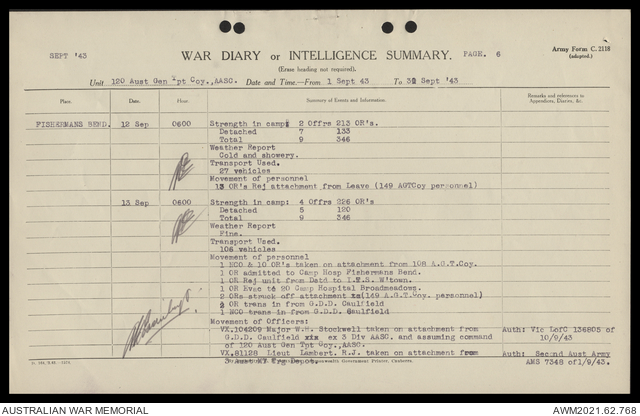 SEPT '43
WAR DIARY or INTELLIGENCE SUMMARY. PAGE. 6
Army Form C. 2118
(adapted.)
(Erase heading not required).
Unit 120 Aust Gen Tpt Coy., AASC. Date and Time.—From 1 Sept 43 To 30 Sept '43
Place. Date. Hour Summary of Events and Information. Remarks and references to
Appendices, Diaries, &c.
FISHERMANS BEND. 12 Sep 0600 Strength in camp: 2 Offrs 213 OR's.
Detached 7 133
Total 9 346
Weather Report
Cold and showery.
Transport Used.
27 vehicles
Movement of personnel
13 OR's Rej attachment from Leave (149 AGTCoy personnel)
13 Sep 0600 Strength in camp: 4 Offrs 226 OR's
Detached 5 120
Total 9 346
Weather Report
Fine.
Transport Used.
106 vehicles
Movement of personnel
1 NCO & 10 OR's taken on attachment from 108 A.G.T.Coy.
1 OR admitted to Camp Hosp Fishermans Bend.
1 OR Rej unit from Detd to L.T.S. W'town.
1 OR Evac to 20 Camp Hospital Broadmeadows.
2 ORs struck off attachment (149 A.G.T.Coy. personnel)
2 OR trans in from G.D.D. Caulfield
1 NCO trans in from G.D.D. Caulfield
Movement of Officers:
VX.104209 Major W.H. Stockwell taken on attachment from Auth: Vic LofC 136805 of
G.D.D. Caulfield xix ex 3 Div AASC. and assuming command 10/9/43
of 120 Aust Gen Tpt Coy., AASC.
VX.81128 Lieut Lambert. R.J. taken on attachment from Auth: Second Aust Army
3 Aust MT Trg Depot. AMS 7348 of 1/9/43.
Government Printer, Canberra.
AUSTRALIAN WAR MEMORIAL AWM2021.62.768